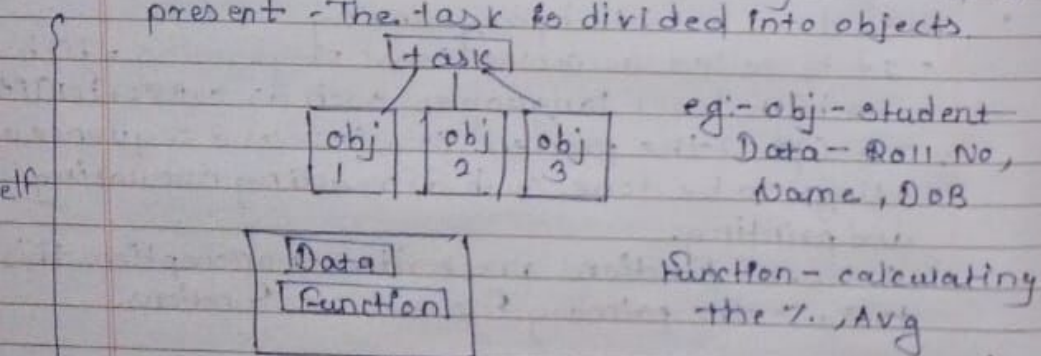 present - The task is divided into objects.
task
obj 1
obj 2
obj 3
eg:- obj - student
Data - Roll No,
Name, DOB
elf
Data
Function
Function - calculating
the %, Avg